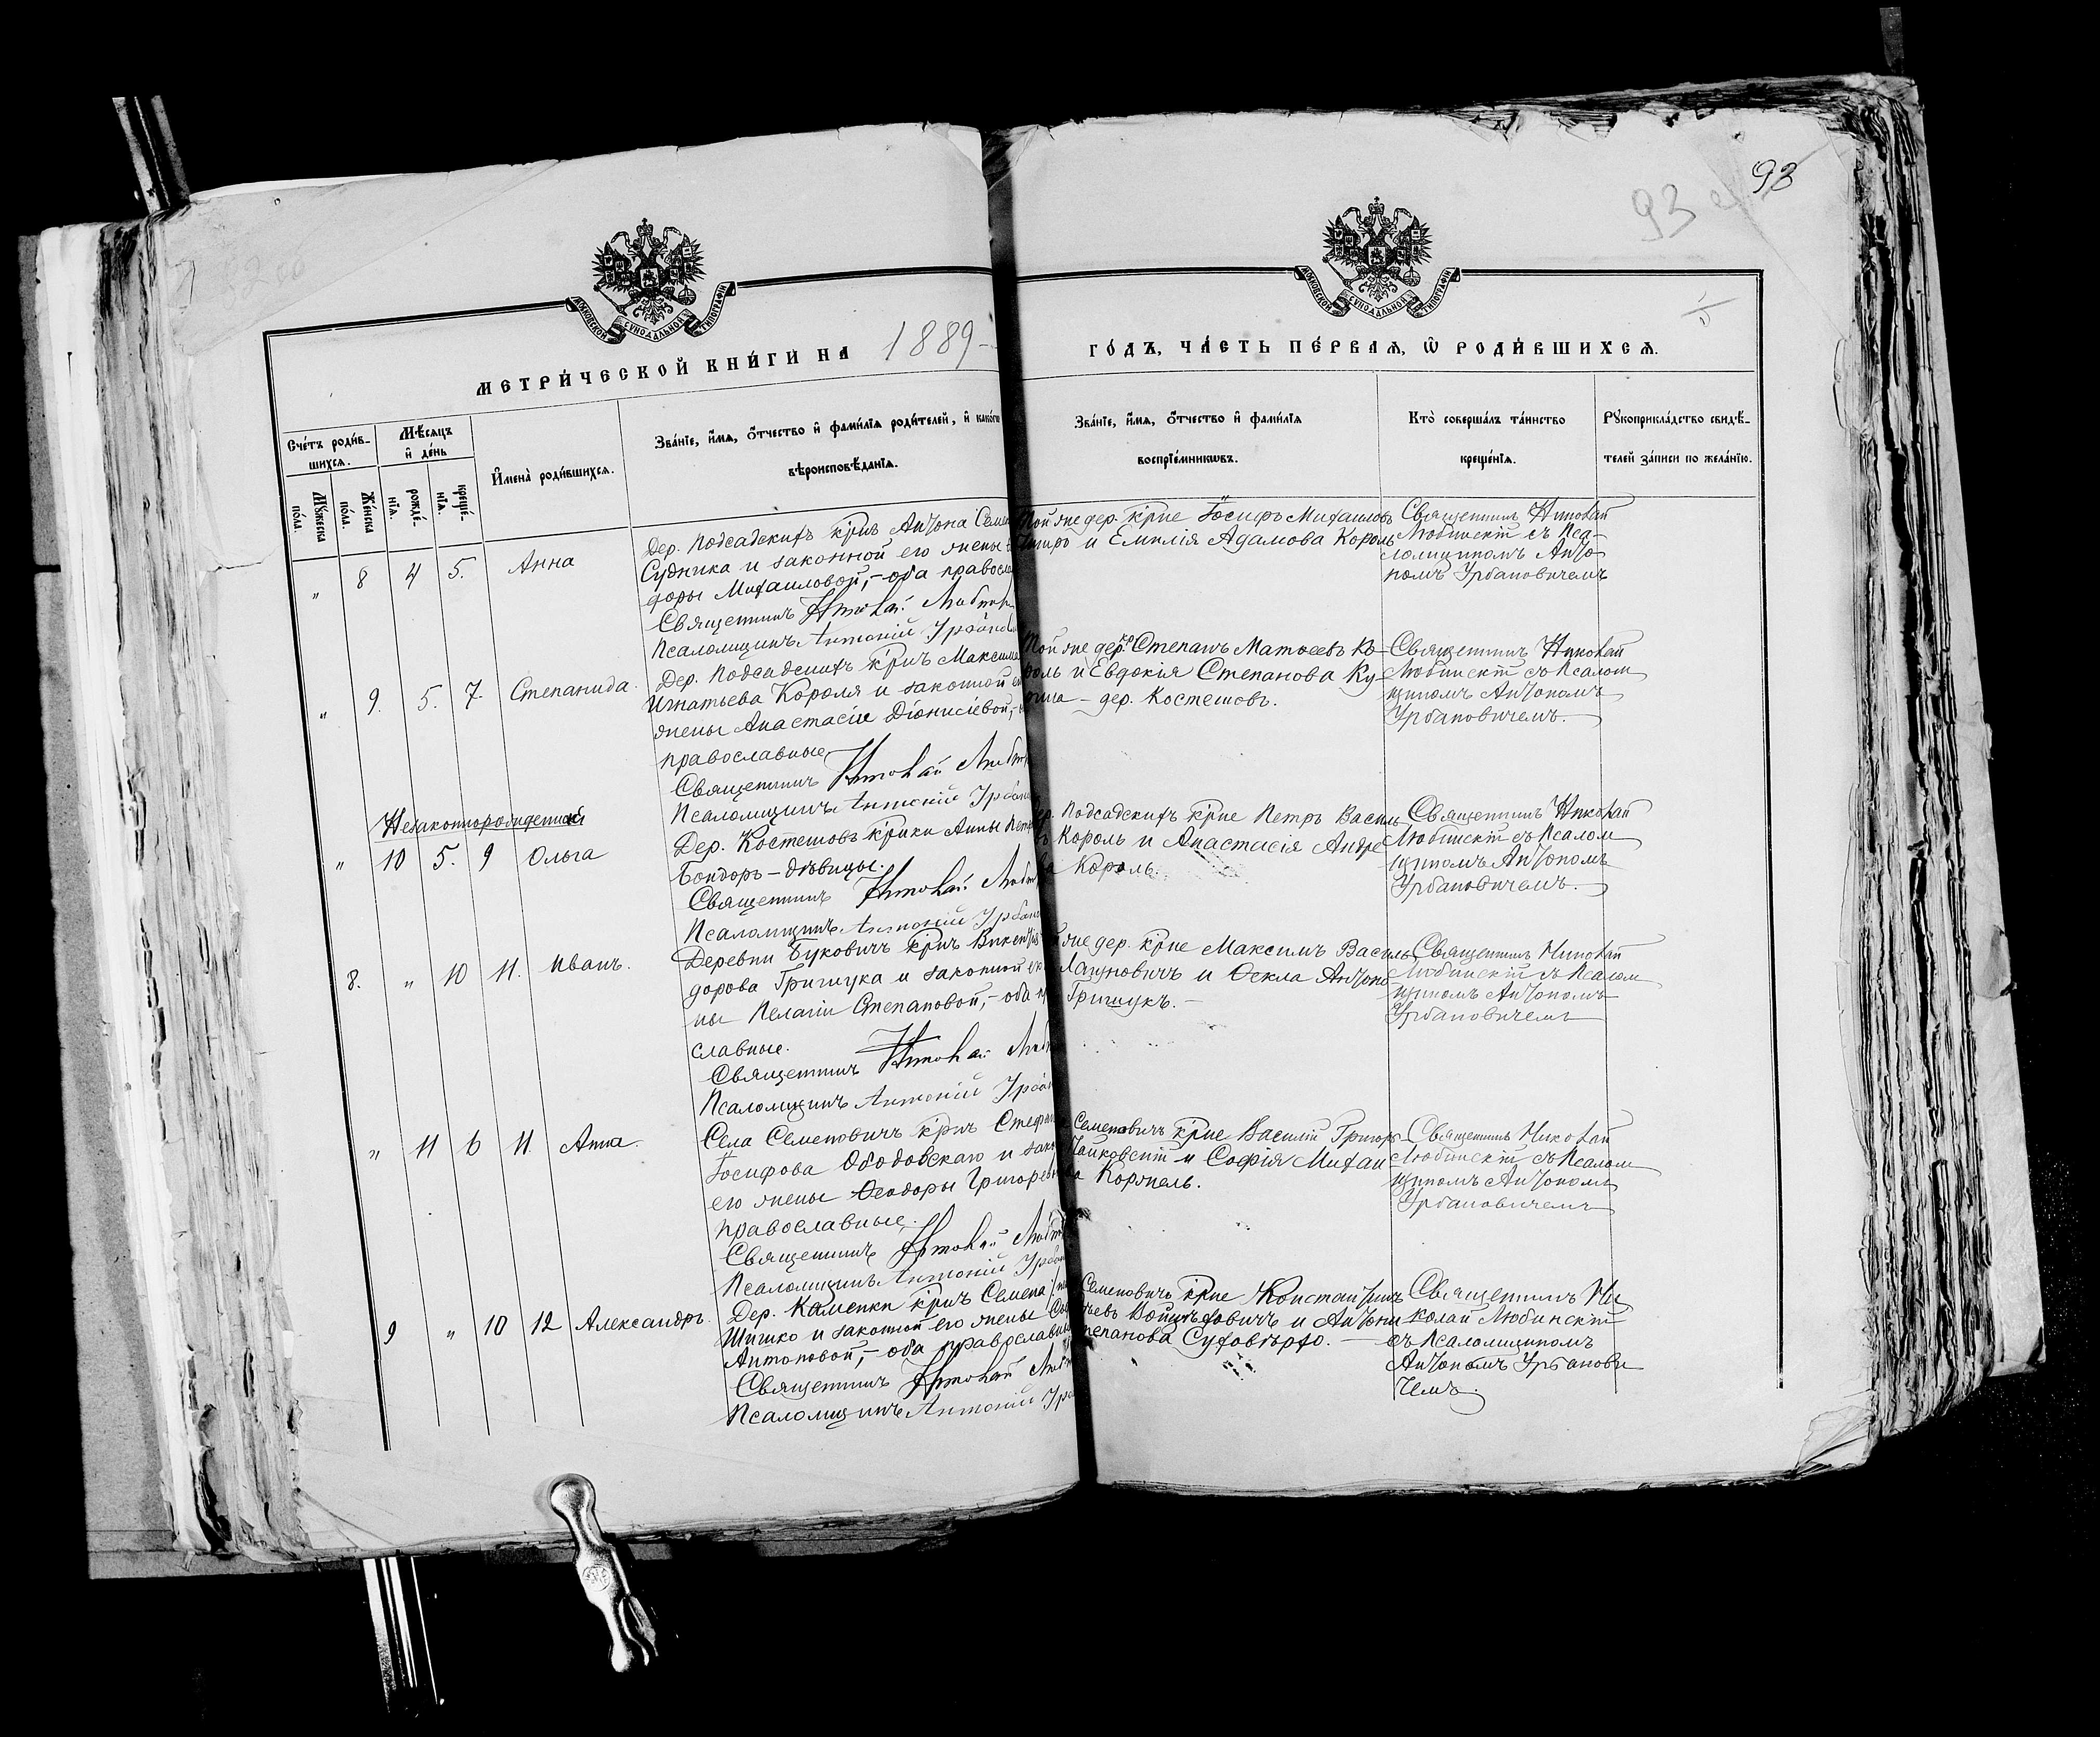 93
93
МОСКОВСКОЙ СУНОДАЛЬНОЙ ТИПОГРАФІИ
МОСКОВСКОЙ СУНОДАЛЬНОЙ ТИПОГРАФІИ
МЕТРИ́ЧЕСКОЙ КНИ́ГИ НА 1889
ГО́ДЪ, ЧА́СТЬ ПЕ́РВАѦ, Ѡ҆ РОДИ́ВШИХСѦ.
Сче́тъ роди́в-
шихсѧ.
Мѣ́сѧцъ
и҆ де́нь
Мꙋ́жеска
по́ла.
Же́нска
по́ла.
рожде́-
нїѧ.
креще́-
нїѧ.
И҆мена̀ роди́вшихсѧ.
Зва́нїе, и҆́мѧ, ѻ҆́тчество и҆ фами́лїѧ роди́телей, и҆ како́гѡ
вѣроисповѣ́данїѧ.
Зва́нїе, и҆́мѧ, ѻ҆́тчество и҆ фами́лїѧ
воспрїе́мникѡвъ.
Кто̀ соверша́лъ та́инство
креще́нїѧ.
Рꙋкоприкла́дство свидѣ́-
телей за́писи по жела́нїю.
" 8 4 5. Анна
Дер. Подсадскихъ кр̃нъ Антона Семе
Судника и законной его жены
доры Михаиловой,- оба правосла
Священникъ Николай Любин
Псаломщикъ Антоній Урбанов
Той же дер. кр̃не Іосифъ Михаиловъ
и Емилія Адамова Король
Священникъ Николай
Любинскій съ Пса-
ломщикомъ Анто-
номъ Урбановичемъ
" 9. 5. 7. Степанида.
Дер. Подсадскихъ кр̃нъ Максима
Игнатьева Короля и законной
жены Анастасіи Діонисіевой,-
православные
Священникъ Николай Любин
Псаломщикъ Антоній Урбан
Той же дер. Степанъ Матѳеевъ Ко-
роль и Евдокія Степанова Ку-
– дер. Костешовъ.
Священникъ Николай
Любинскій съ Псалом
щикомъ Антономъ
Урбановичемъ.
Незаконнорожденная
" 10 5. 9 Ольга
Дер. Костешовъ кр̃нки Анны Петр
Бондорь – дѣвицы.
Священникъ Николай Любин
Псаломщикъ Антоній Урбан
Дер. Подсадскихъ кр̃не Петръ Василь
Король и Анастасія Андре
Король.
Священникъ Николай
Любинскій съ Псалом
щикомъ Антономъ
Урбановичемъ.
8. " 10 11. Иванъ.
Деревни Буковичъ кр̃нъ Викентія
дорова Грищука и законной
ны Пелагіи Степановой,- оба
славные.
Священникъ Николай Люб
Псаломщикъ Антоній Урбан
же дер. кр̃не Максимъ Василь
Лацуновичъ и Ѳекла Антоно
Грищукъ.-
Священникъ Николай
Любинскій съ Псалом
щикомъ Антономъ
Урбановичемъ
" 11 6 11. Анна.
Села Семеновичъ кр̃нъ Стефана
Іосифова Ободовскаго и зако
его жены Ѳеодоры Григорьев
православные.
Священникъ Николай Любин
Псаломщикъ Антоній Урбан
Семеновичъ кр̃не Василій Григорь
Чайковскій и Софія Михаи
Коржель.
Священникъ Николай
Любинскій съ Псалом
щикомъ Антономъ
Урбановичемъ
9 " 10 12 Александръ.
Дер. Каменки кр̃нъ Семена
Шишко и законной его жены
Антоновой,- оба православны
Священникъ Николай Люб
Псаломщикъ Антоній Урб
Семеновичъ кр̃не Константинъ
Войцеховичъ и Антони
Степанова Суховѣрхо.
Священникъ Ни
колай Любинскій
съ Псаломщикомъ
Антономъ Урбанови
чемъ.